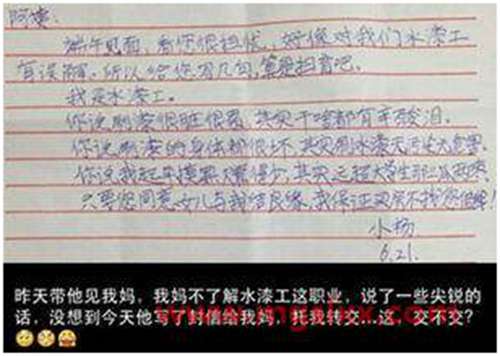 阿姨:
端午见面,看您很担忧,好像对我们水漆工
有误解。所以给您写几句,算是自白吧。
我是水漆工。
你说刷漆很脏很累,其实干啥都有辛酸泪。
你说刷漆的身体都很坏,其实刷水漆无污染无危害。
你说我起早摸黑不赚得少,其实远超大学生
只要您同意女儿与我结良缘,我保证买房不找您借钱!
小杨
6.21.
昨天带他见我妈,我妈不了解水漆工这职业,说了一些尖锐的
话,没想到今天他写了封信给我妈,托我转交...这,交不交?